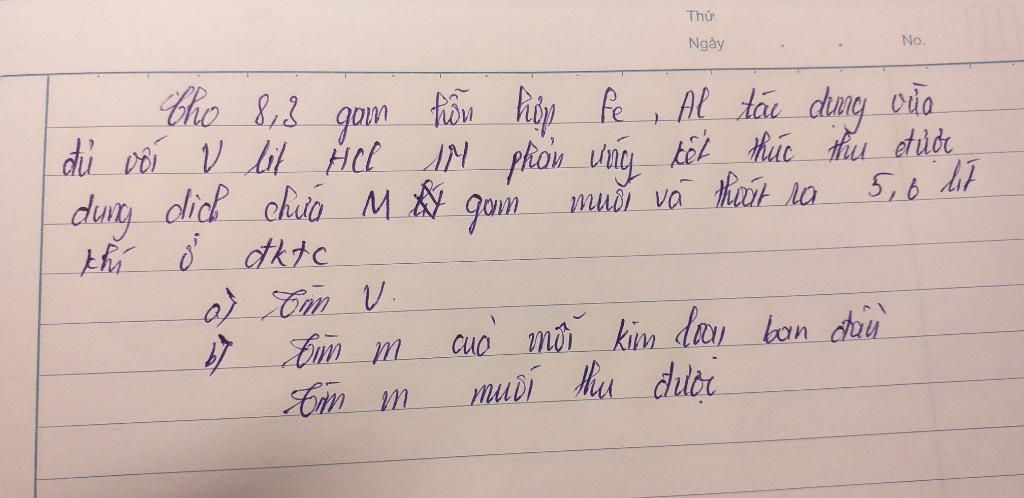 Thứ
Ngày . . No.
Cho 8,3 gam hỗn hợp Fe, Al tác dụng vừa
đủ với V lít HCl 1M phản ứng kết thúc thu được
dung dịch chứa M gam muối và thoát ra 5,6 lít
khí ở đktc
a) Tìm V.
b) Tìm m của mỗi kim loại ban đầu
Tìm m muối thu được